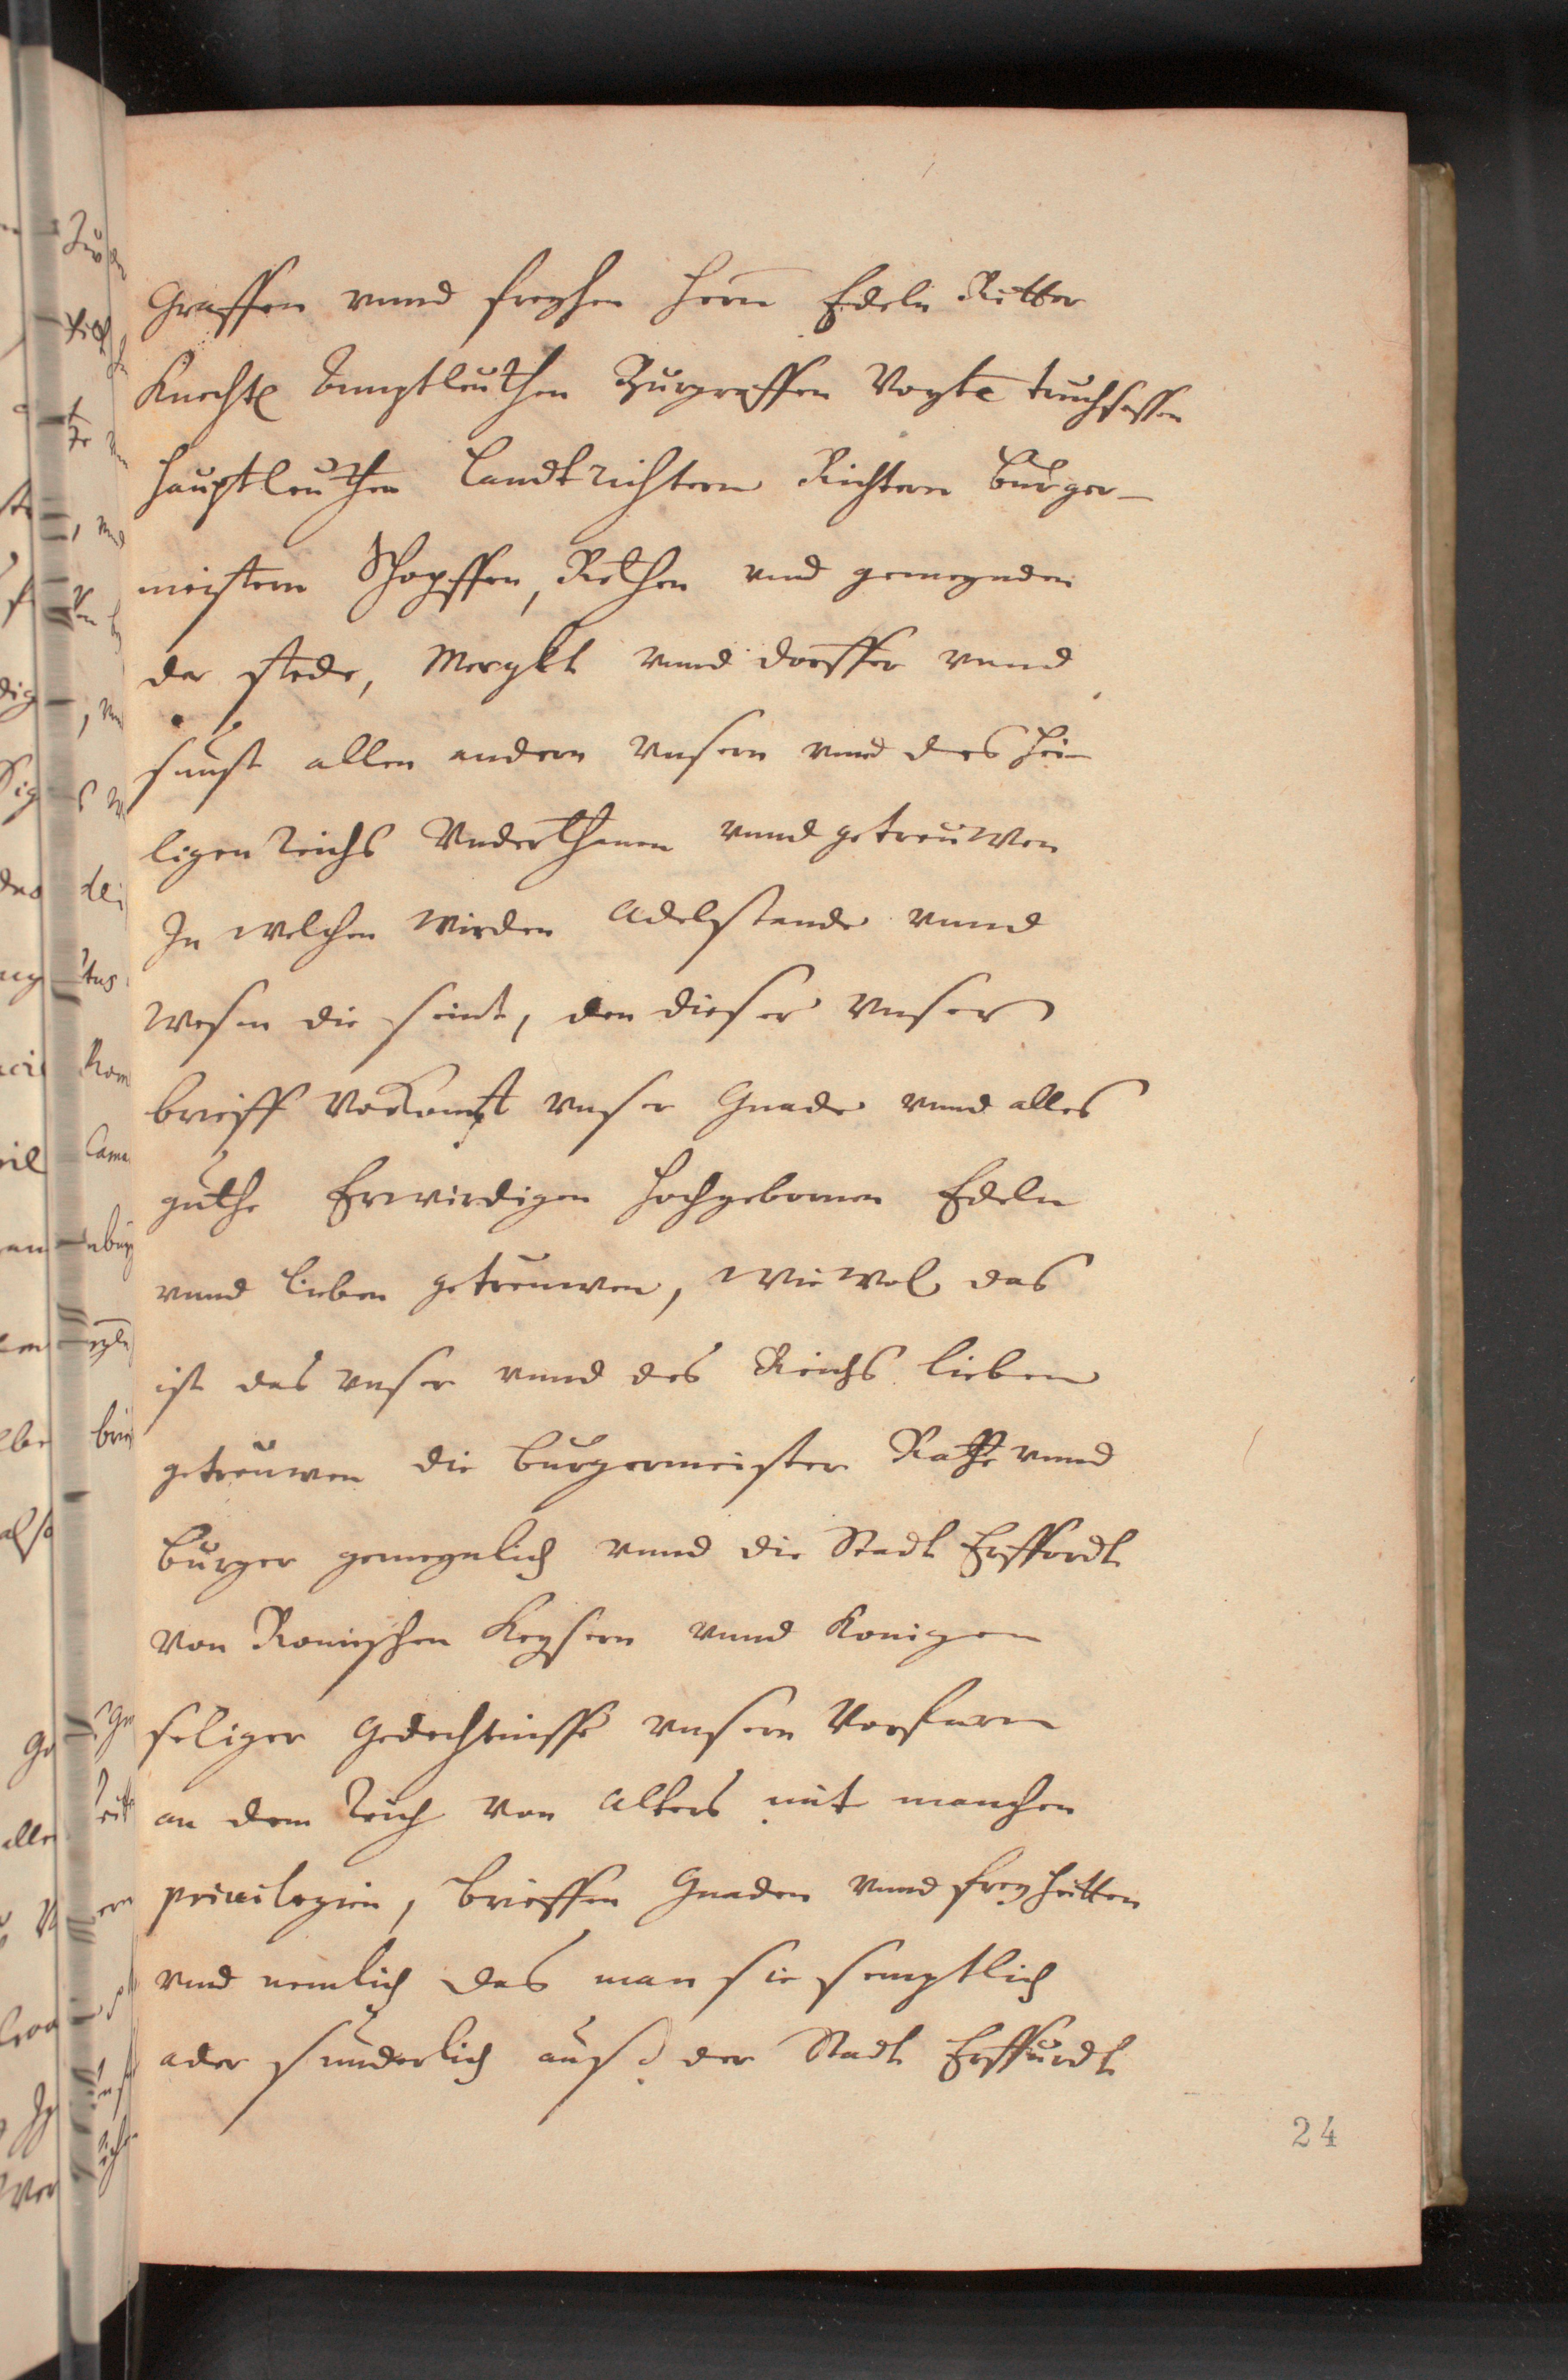 Graffen vnnd freyhen Herrn Edeln Ritter
Knechte Amptleuthen Burgraffen Vogte truchsessen
Hauptleuthen Landtrichtern Richtern Burger-
meistern Schopffen, Rethen vnd gemeynden
der stede, Mergkt vnnd dorffer vnnd
sunst allen andern vnsern vnnd des hei-
ligen Reichs Vnderthanen vnnd getreuwen
In welchen wirden Adelstande vnnd
wesen die seint, den dieser vnser
brieff vorkompt vnser Gnade vnnd alles
guthe Erwirdigen Hochgebornen Edeln
vnnd lieben getreuwen, wiewol das
ist das vnser vnnd des Reichs lieben
getreuwen die burgermeister Rathe vnnd
burger gemeynlich vnnd die Stadt Erffordt
von Romischen Keysern vnnd Konigen
seliger gedechtnisse vnsern Vorfarn
an dem Reich von Alters mit manchen
priuilegien, brieffen Gnaden vnnd freyheitten
vnd nemlich das man sie semptlich
ader sunderlich auß der Stadt Erffurdt
24